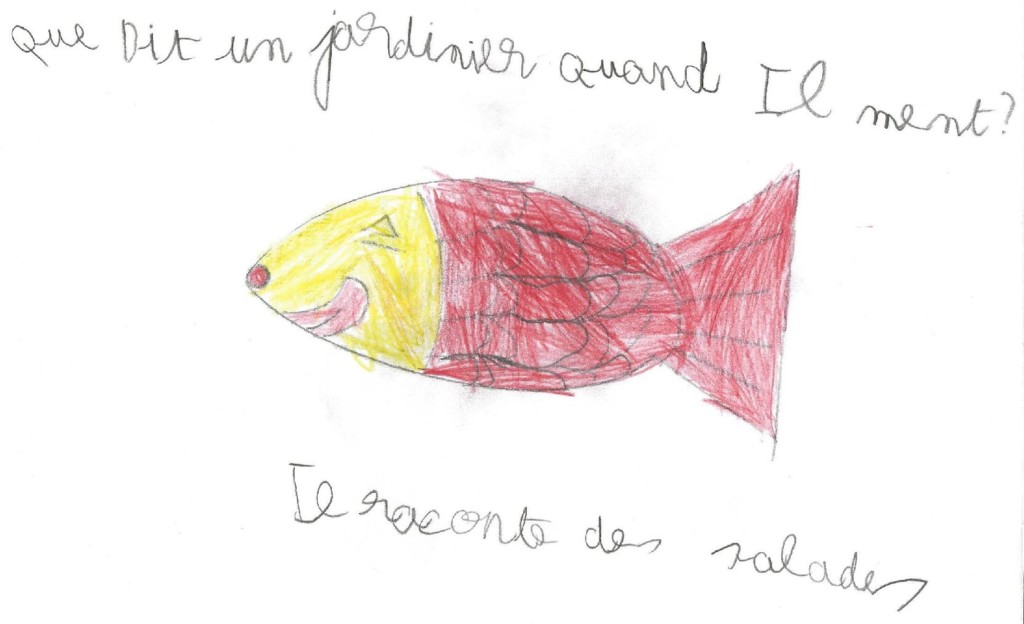 que Dit un jardinier quand Il ment?
Il raconte des salades